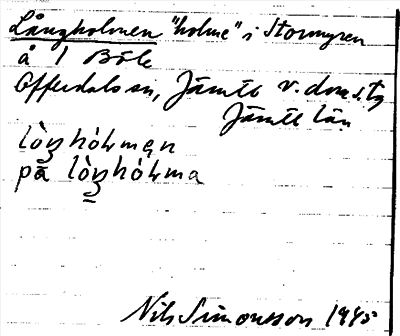 Långholmen "holme" i Stormyren
å 1 Böle
Offerdals sn, Jämtl v. doms.
Jämtl län
på
Nils Simonsson 1945